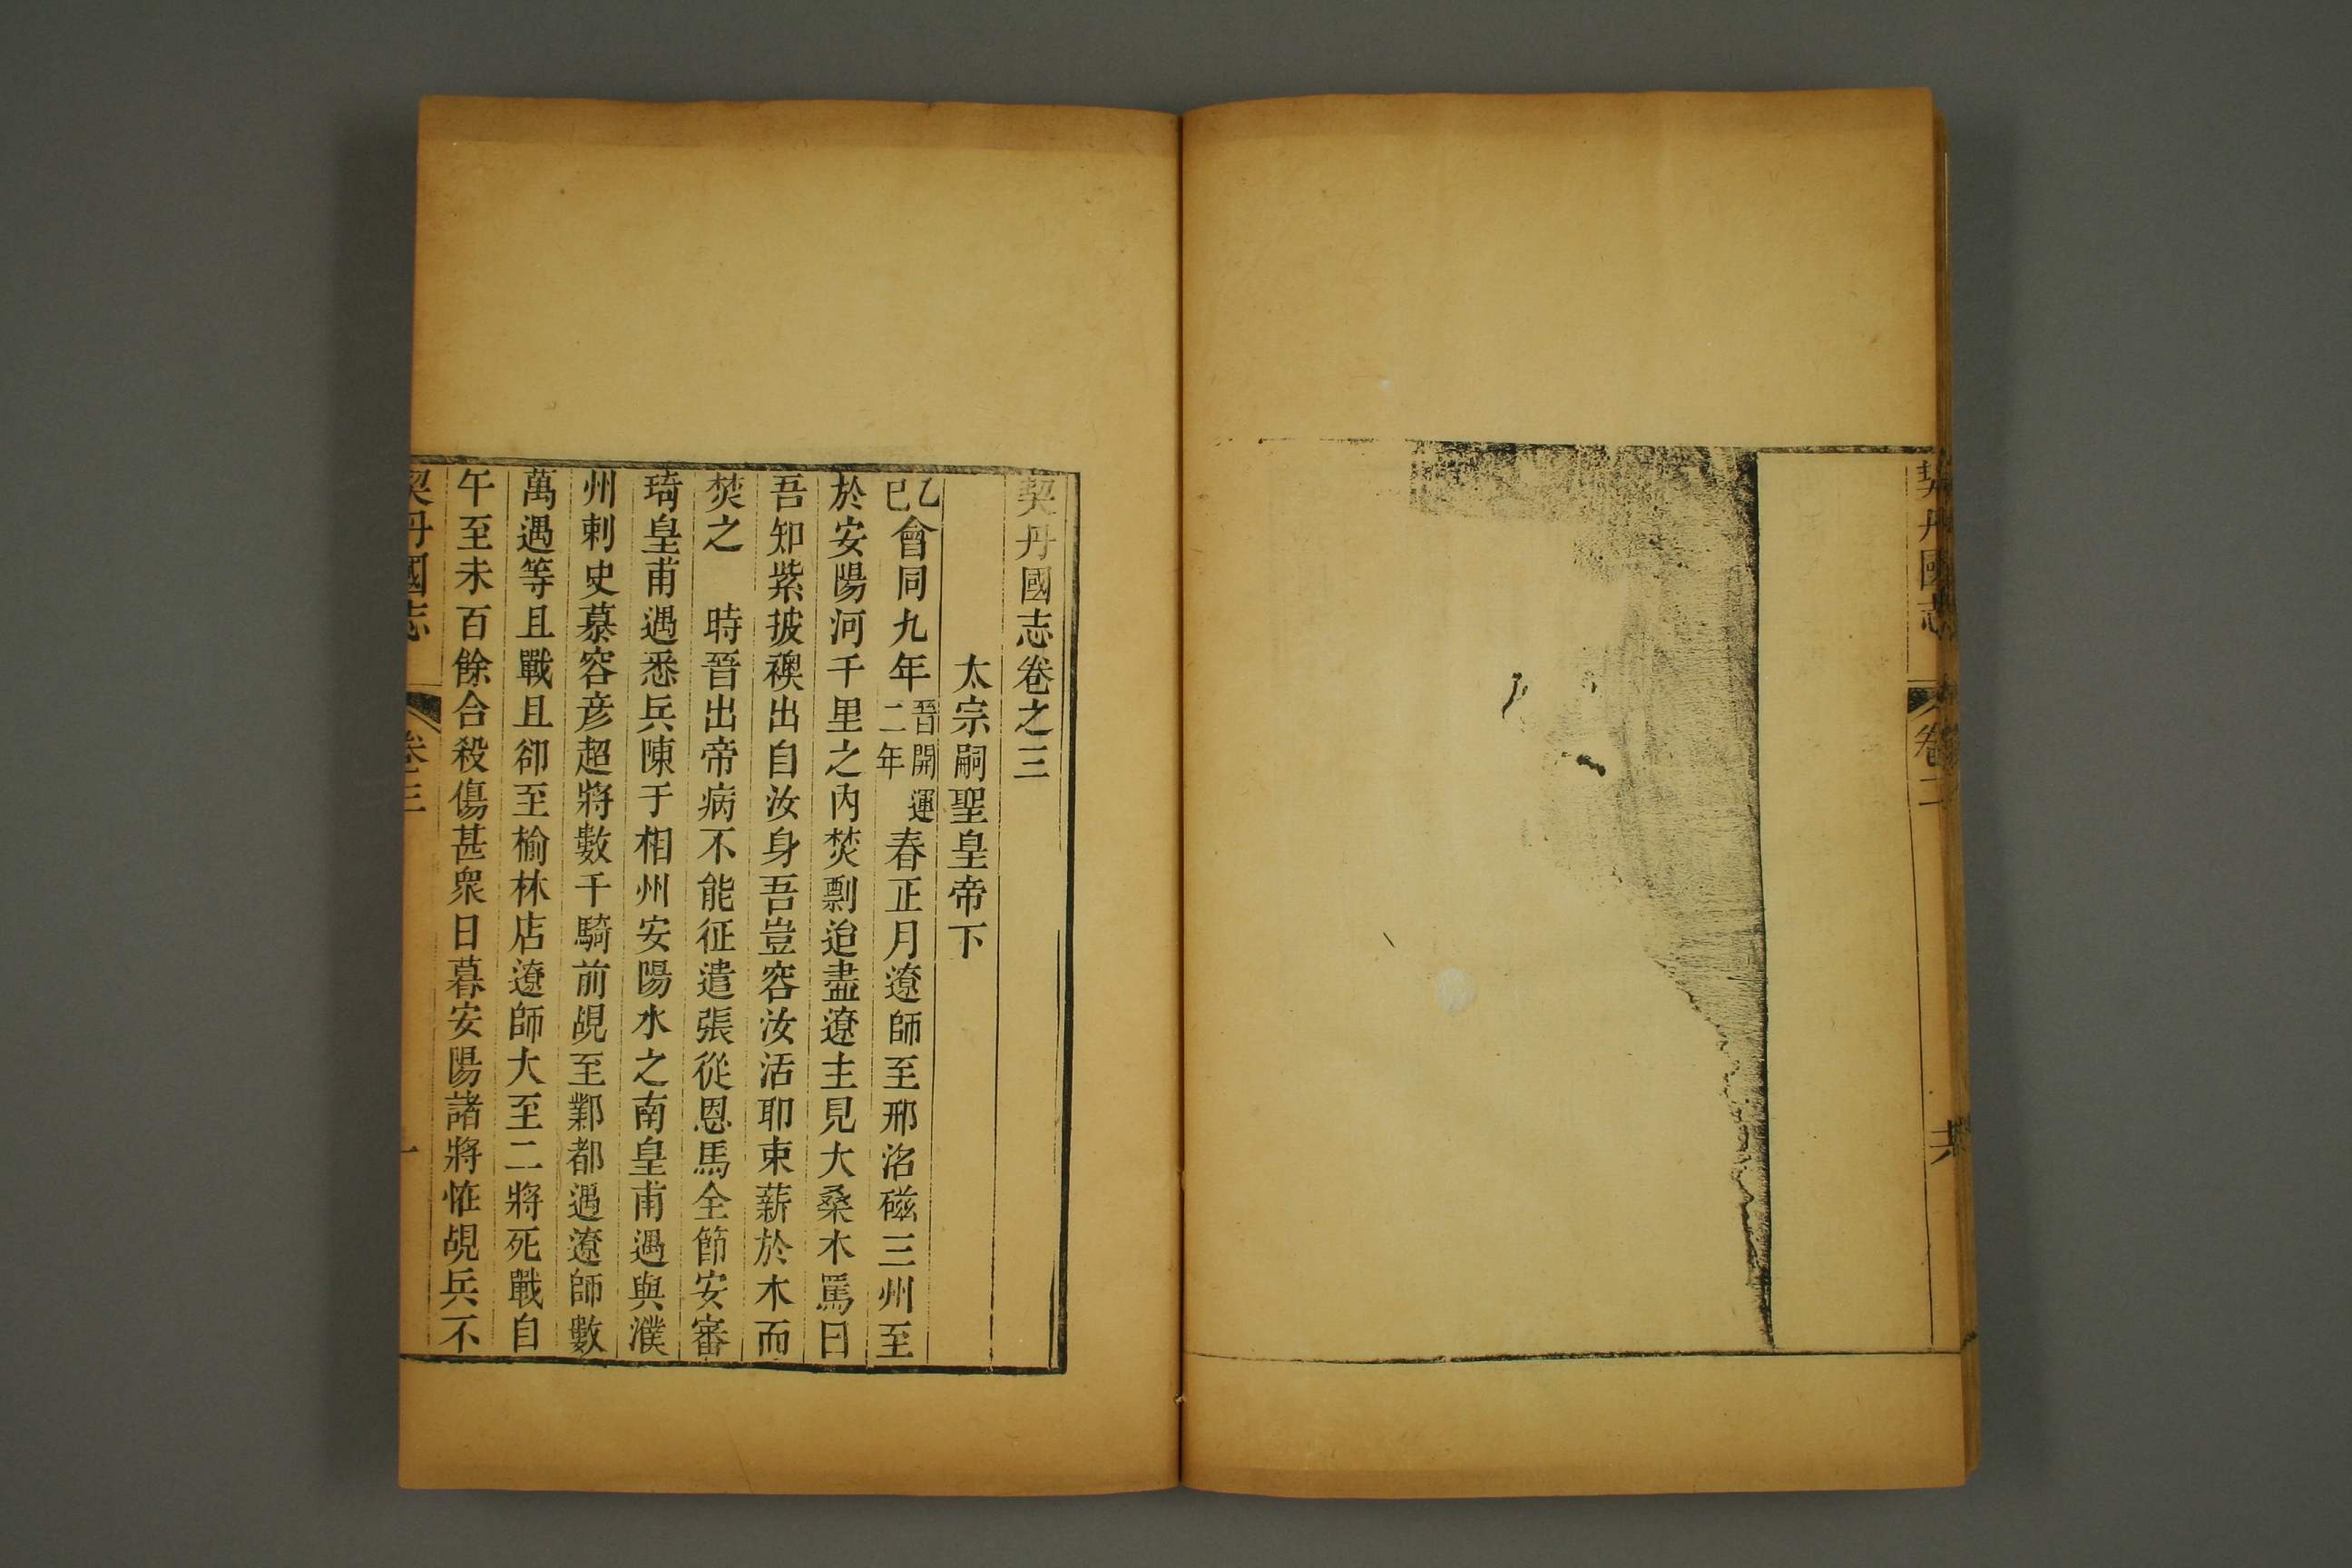 契丹國志
卷二
契丹國志卷之三
太宗嗣聖皇帝下
乙巳會同九年晉開運二年春正月遼師至邢洺磁三州至
於安陽河千里之內焚剽迨盡遼主見大桑木罵曰
吾知紫披襖出自汝身吾豈容汝活耶束薪於木而
焚之　時晉出帝病不能征遣張從恩馬全節安審
琦皇甫遇悉兵陳于相州安陽水之南皇甫遇與濮
州刺史慕容彦超將數千騎前覘至鄴都遇遼師數
萬遇等且戰且卻至榆林店遼師大至二將死戰自
午至未百餘合殺傷甚衆日暮安陽諸將惟覘兵不
契丹國志
卷三
一